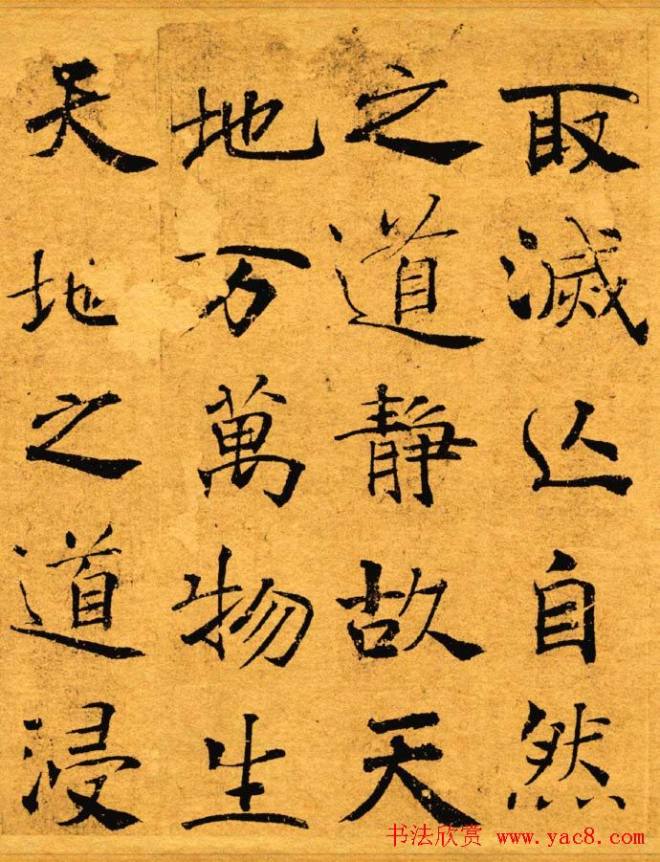 取滅亾自然
之道靜故天
地万萬物生
天地之道浸
书法欣赏 www.yac8.com